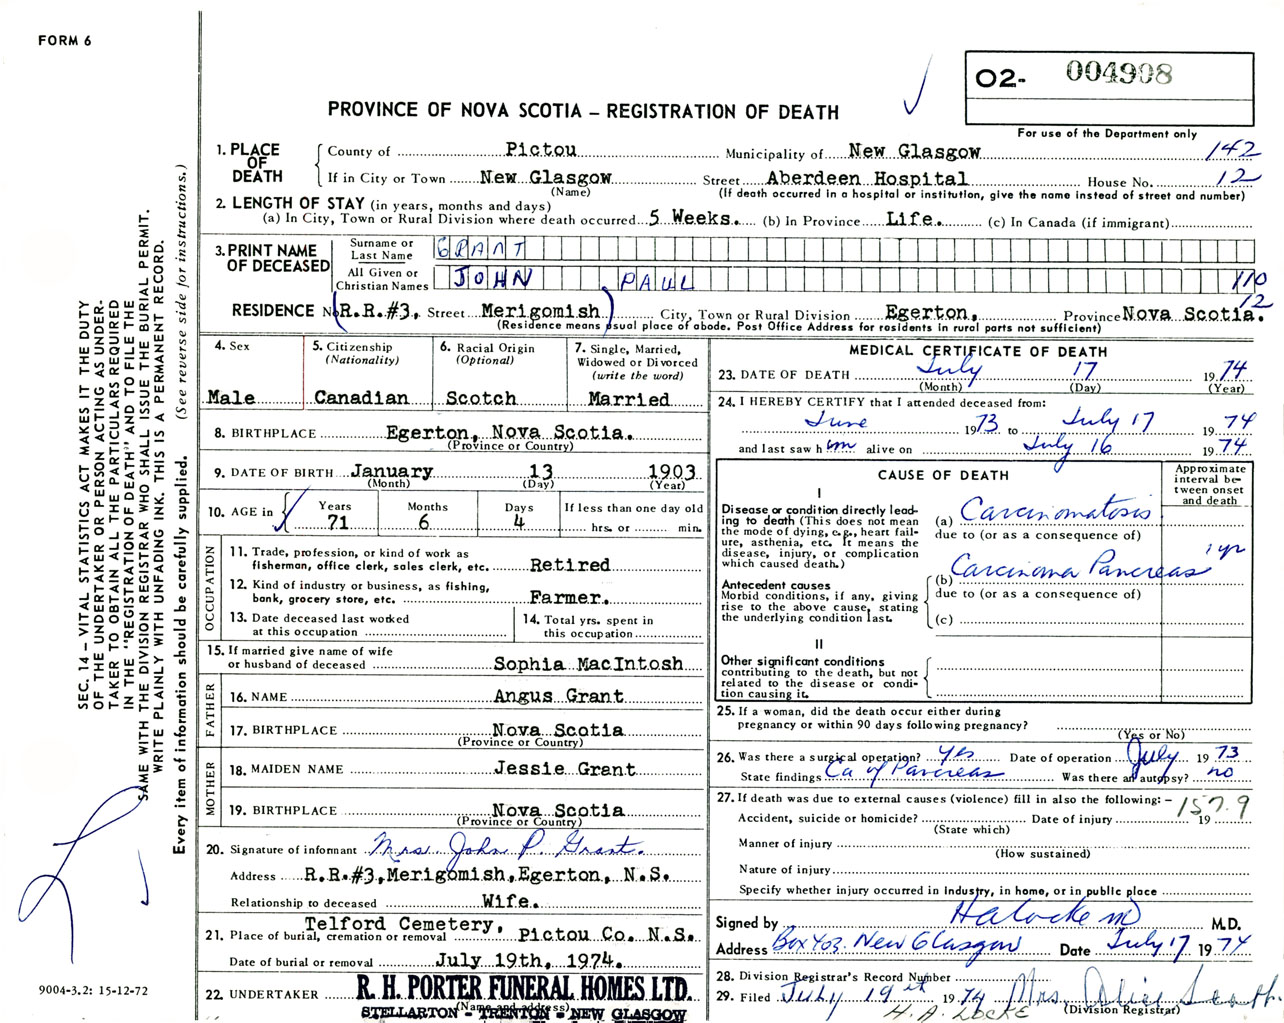 FORM 6
O2- 004908
For use of the Department only
PROVINCE OF NOVA SCOTIA – REGISTRATION OF DEATH
1. PLACE OF DEATH
County of Pictou Municipality of New Glasgow 142
If in City or Town New Glasgow Street Aberdeen Hospital House No. 12
(Name) (If death occurred in a hospital or institution, give the name instead of street and number)
2. LENGTH OF STAY (in years, months and days)
(a) In City, Town or Rural Division where death occurred 5 Weeks. (b) In Province Life. (c) In Canada (if immigrant)
3. PRINT NAME OF DECEASED
Surname or Last Name GRANT
All Given or Christian Names JOHN PAUL 110
12
RESIDENCE No R.R.#3, Street Merigomish City, Town or Rural Division Egerton, Province Nova Scotia.
(Residence means usual place of abode. Post Office Address for residents in rural parts not sufficient)
4. Sex
Male
5. Citizenship
(Nationality)
Canadian
6. Racial Origin
(Optional)
Scotch
7. Single, Married,
Widowed or Divorced
(write the word)
Married
8. BIRTHPLACE Egerton, Nova Scotia.
(Province or Country)
9. DATE OF BIRTH January 13 1903
(Month) (Day) (Year)
10. AGE in
Years Months Days If less than one day old
71 6 4 hrs. or min.
OCCUPATION
11. Trade, profession, or kind of work as
fisherman, office clerk, sales clerk, etc. Retired
12. Kind of industry or business, as fishing,
bank, grocery store, etc. Farmer.
13. Date deceased last worked
at this occupation
14. Total yrs. spent in
this occupation
15. If married give name of wife
or husband of deceased Sophia MacIntosh
FATHER
16. NAME Angus Grant
17. BIRTHPLACE Nova Scotia
(Province or Country)
MOTHER
18. MAIDEN NAME Jessie Grant
19. BIRTHPLACE Nova Scotia
(Province or Country)
20. Signature of informant Mrs John P. Grant.
Address R.R.#3, Merigomish, Egerton, N.S.
Relationship to deceased Wife.
Telford Cemetery,
21. Place of burial, cremation or removal Pictou Co. N.S.
Date of burial or removal July 19th, 1974.
22. UNDERTAKER R. H. PORTER FUNERAL HOMES LTD.
(Name and address)
STELLARTON - TRENTON - NEW GLASGOW
MEDICAL CERTIFICATE OF DEATH
23. DATE OF DEATH July 17 1974
(Month) (Day) (Year)
24. I HEREBY CERTIFY that I attended deceased from:
June 1973 to July 17 1974
and last saw him alive on July 16 1974
CAUSE OF DEATH
Approximate
interval be-
tween onset
and death
I
Disease or condition directly lead-
ing to death (This does not mean
the mode of dying, e.g., heart fail-
ure, asthenia, etc. It means the
disease, injury, or complication
which caused death.)
(a) Carcinomatosis
due to (or as a consequence of)
Antecedent causes
Morbid conditions, if any, giving
rise to the above cause, stating
the underlying condition last.
(b) Carcinoma Pancreas 1 yr
due to (or as a consequence of)
(c)
II
Other significant conditions
contributing to the death, but not
related to the disease or condi-
tion causing it.
25. If a woman, did the death occur either during
pregnancy or within 90 days following pregnancy?
(Yes or No)
26. Was there a surgical operation? yes Date of operation July 1973
State findings Ca of Pancreas Was there an autopsy? no
27. If death was due to external causes (violence) fill in also the following:– 157.9
Accident, suicide or homicide? Date of injury 19
(State which)
Manner of injury
(How sustained)
Nature of injury
Specify whether injury occurred in industry, in home, or in public place
Signed by H A Locke MD M.D.
Address Box 403. New Glasgow Date July 17 1974
28. Division Registrar's Record Number
29. Filed July 19th 1974 Mrs. Alice
(Division Registrar)
H. A. LOCKE
SEC. 14 – VITAL STATISTICS ACT MAKES IT THE DUTY
OF THE UNDERTAKER OR PERSON ACTING AS UNDER-
TAKER TO OBTAIN ALL THE PARTICULARS REQUIRED
IN THE "REGISTRATION OF DEATH" AND TO FILE THE
SAME WITH THE DIVISION REGISTRAR WHO SHALL ISSUE THE BURIAL PERMIT.
WRITE PLAINLY WITH UNFADING INK. THIS IS A PERMANENT RECORD.
Every item of information should be carefully supplied. (See reverse side for instructions.)
9004-3.2: 15-12-72